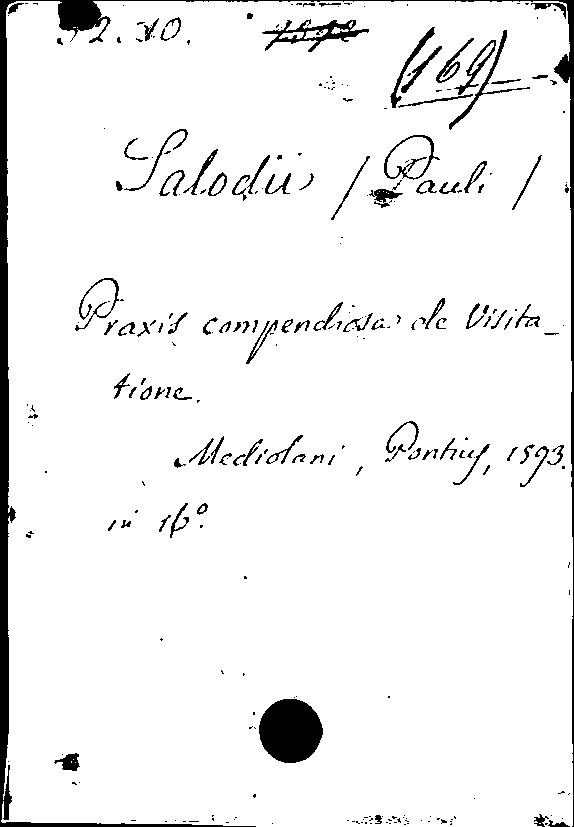 52. 10. (169)
Salodii / Pauli /
Praxis compendiosa de Visita_
tione.
Mediolani, Pontius, 1593.
in 16º.